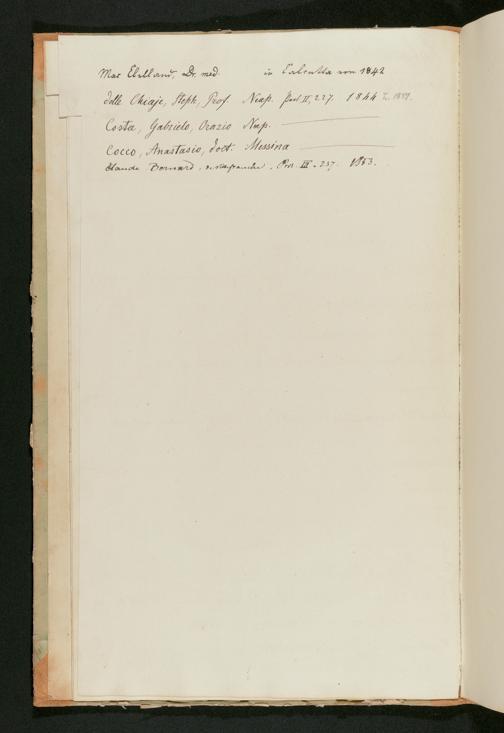 Mac Clelland, Dr. med. in Calcutta von 1842
delle Chiaje, Steph, Prof. Neap. Prot II, 227. 1844
Costa, Gabrielo, Orazio Neap.
Cocco, Anastasio, doct. Messina
Claude Bernard, Prot. III. 237. 1853.